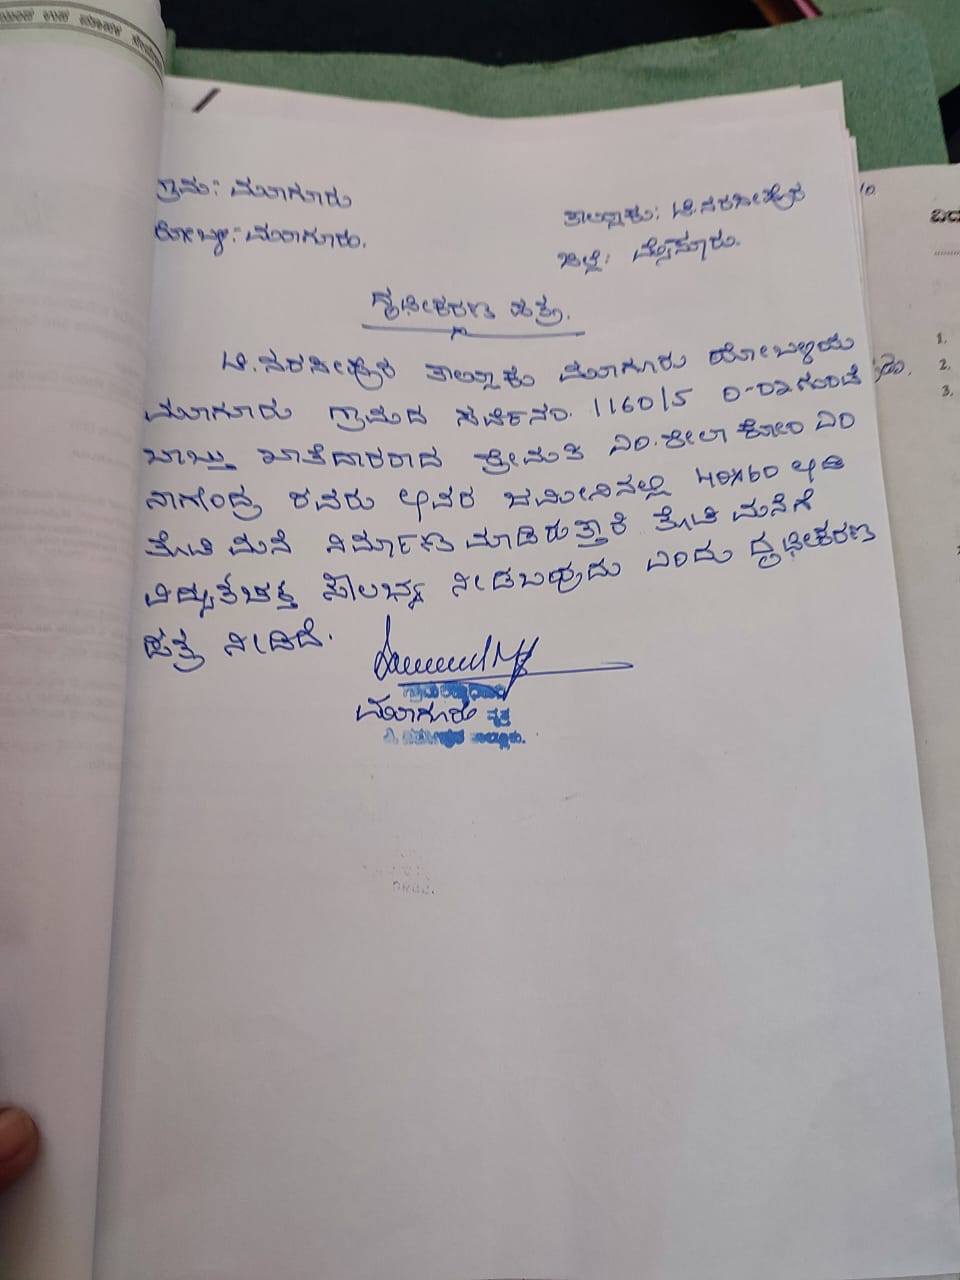 ಗ್ರಾಮ: ಮೂಗೂರು
ಹೋಬಳಿ: ಮೂಗೂರು.
ತಾಲ್ಲೂಕು: ಟಿ.ನರಸೀಪುರ
ಜಿಲ್ಲೆ: ಮೈಸೂರು.
ದೃಢೀಕರಣ ಪತ್ರ.
ಟಿ.ನರಸೀಪುರ ತಾಲ್ಲೂಕು ಮೂಗೂರು ಹೋಬಳಿಯ
ಮೂಗೂರು ಗ್ರಾಮದ ಸರ್ವೆನಂ. 1160/5 0-02 ಗುಂಟೆ
ಬಾಬ್ತು ಖಾತೆದಾರರಾದ ಶ್ರೀಮತಿ ಎಂ.ಶೀಲಾ ಕೋಂ ಎಂ
ನಾಗೇಂದ್ರ ರವರು ಅವರ ಜಮೀನಿನಲ್ಲಿ 40x60 ಅಡಿ
ತೋಟಿ ಮನೆ ನಿರ್ಮಾಣ ಮಾಡಿರುತ್ತಾರೆ ತೋಟಿ ಮನೆಗೆ
ವಿದ್ಯುತ್‌ಚಕ್ತಿ ಸೌಲಭ್ಯ ನೀಡಬಹುದು ಎಂದು ದೃಢೀಕರಣ
ಪತ್ರ ನೀಡಿದೆ.
ಮೂಗೂರು ವೃತ್ತ
ತಾಲ್ಲೂಕು.
1.
2.
3.